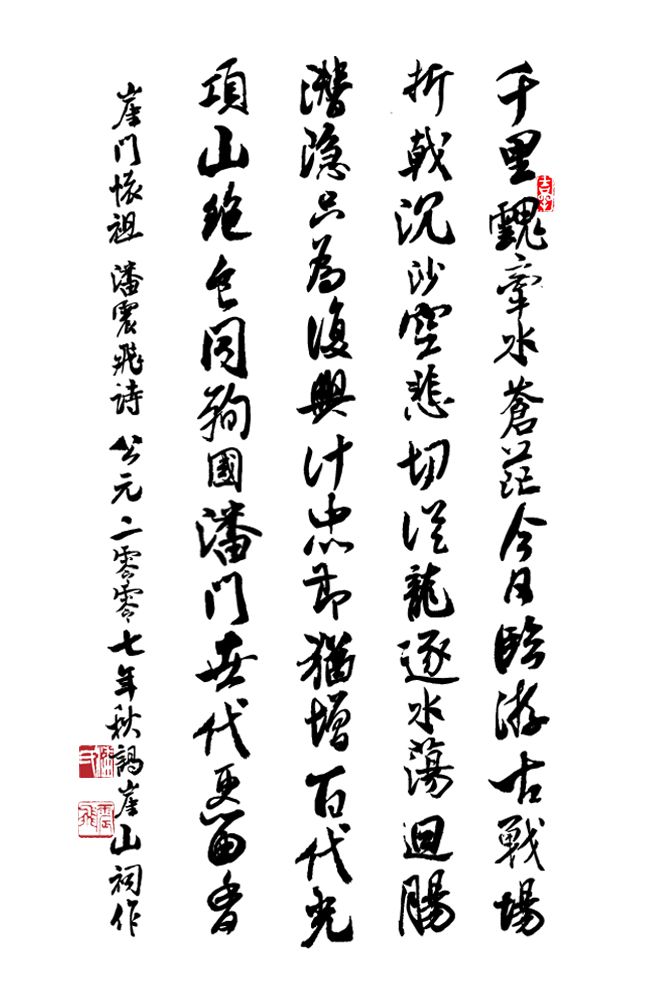 千里魂牽水蒼茫今日臨游古戰場
折戟沉沙空悲切從龍逐水蕩迴腸
潛隐只為復興計忠節猶增百代光
項山絕色同殉國潘門世代更留香
崖門懷祖 潘震飛詩 公元二零零七年秋謁崖山祠作